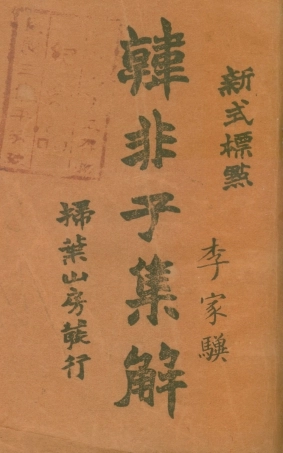 新式標點
李家驥
韓非子集解
掃葉山房發行